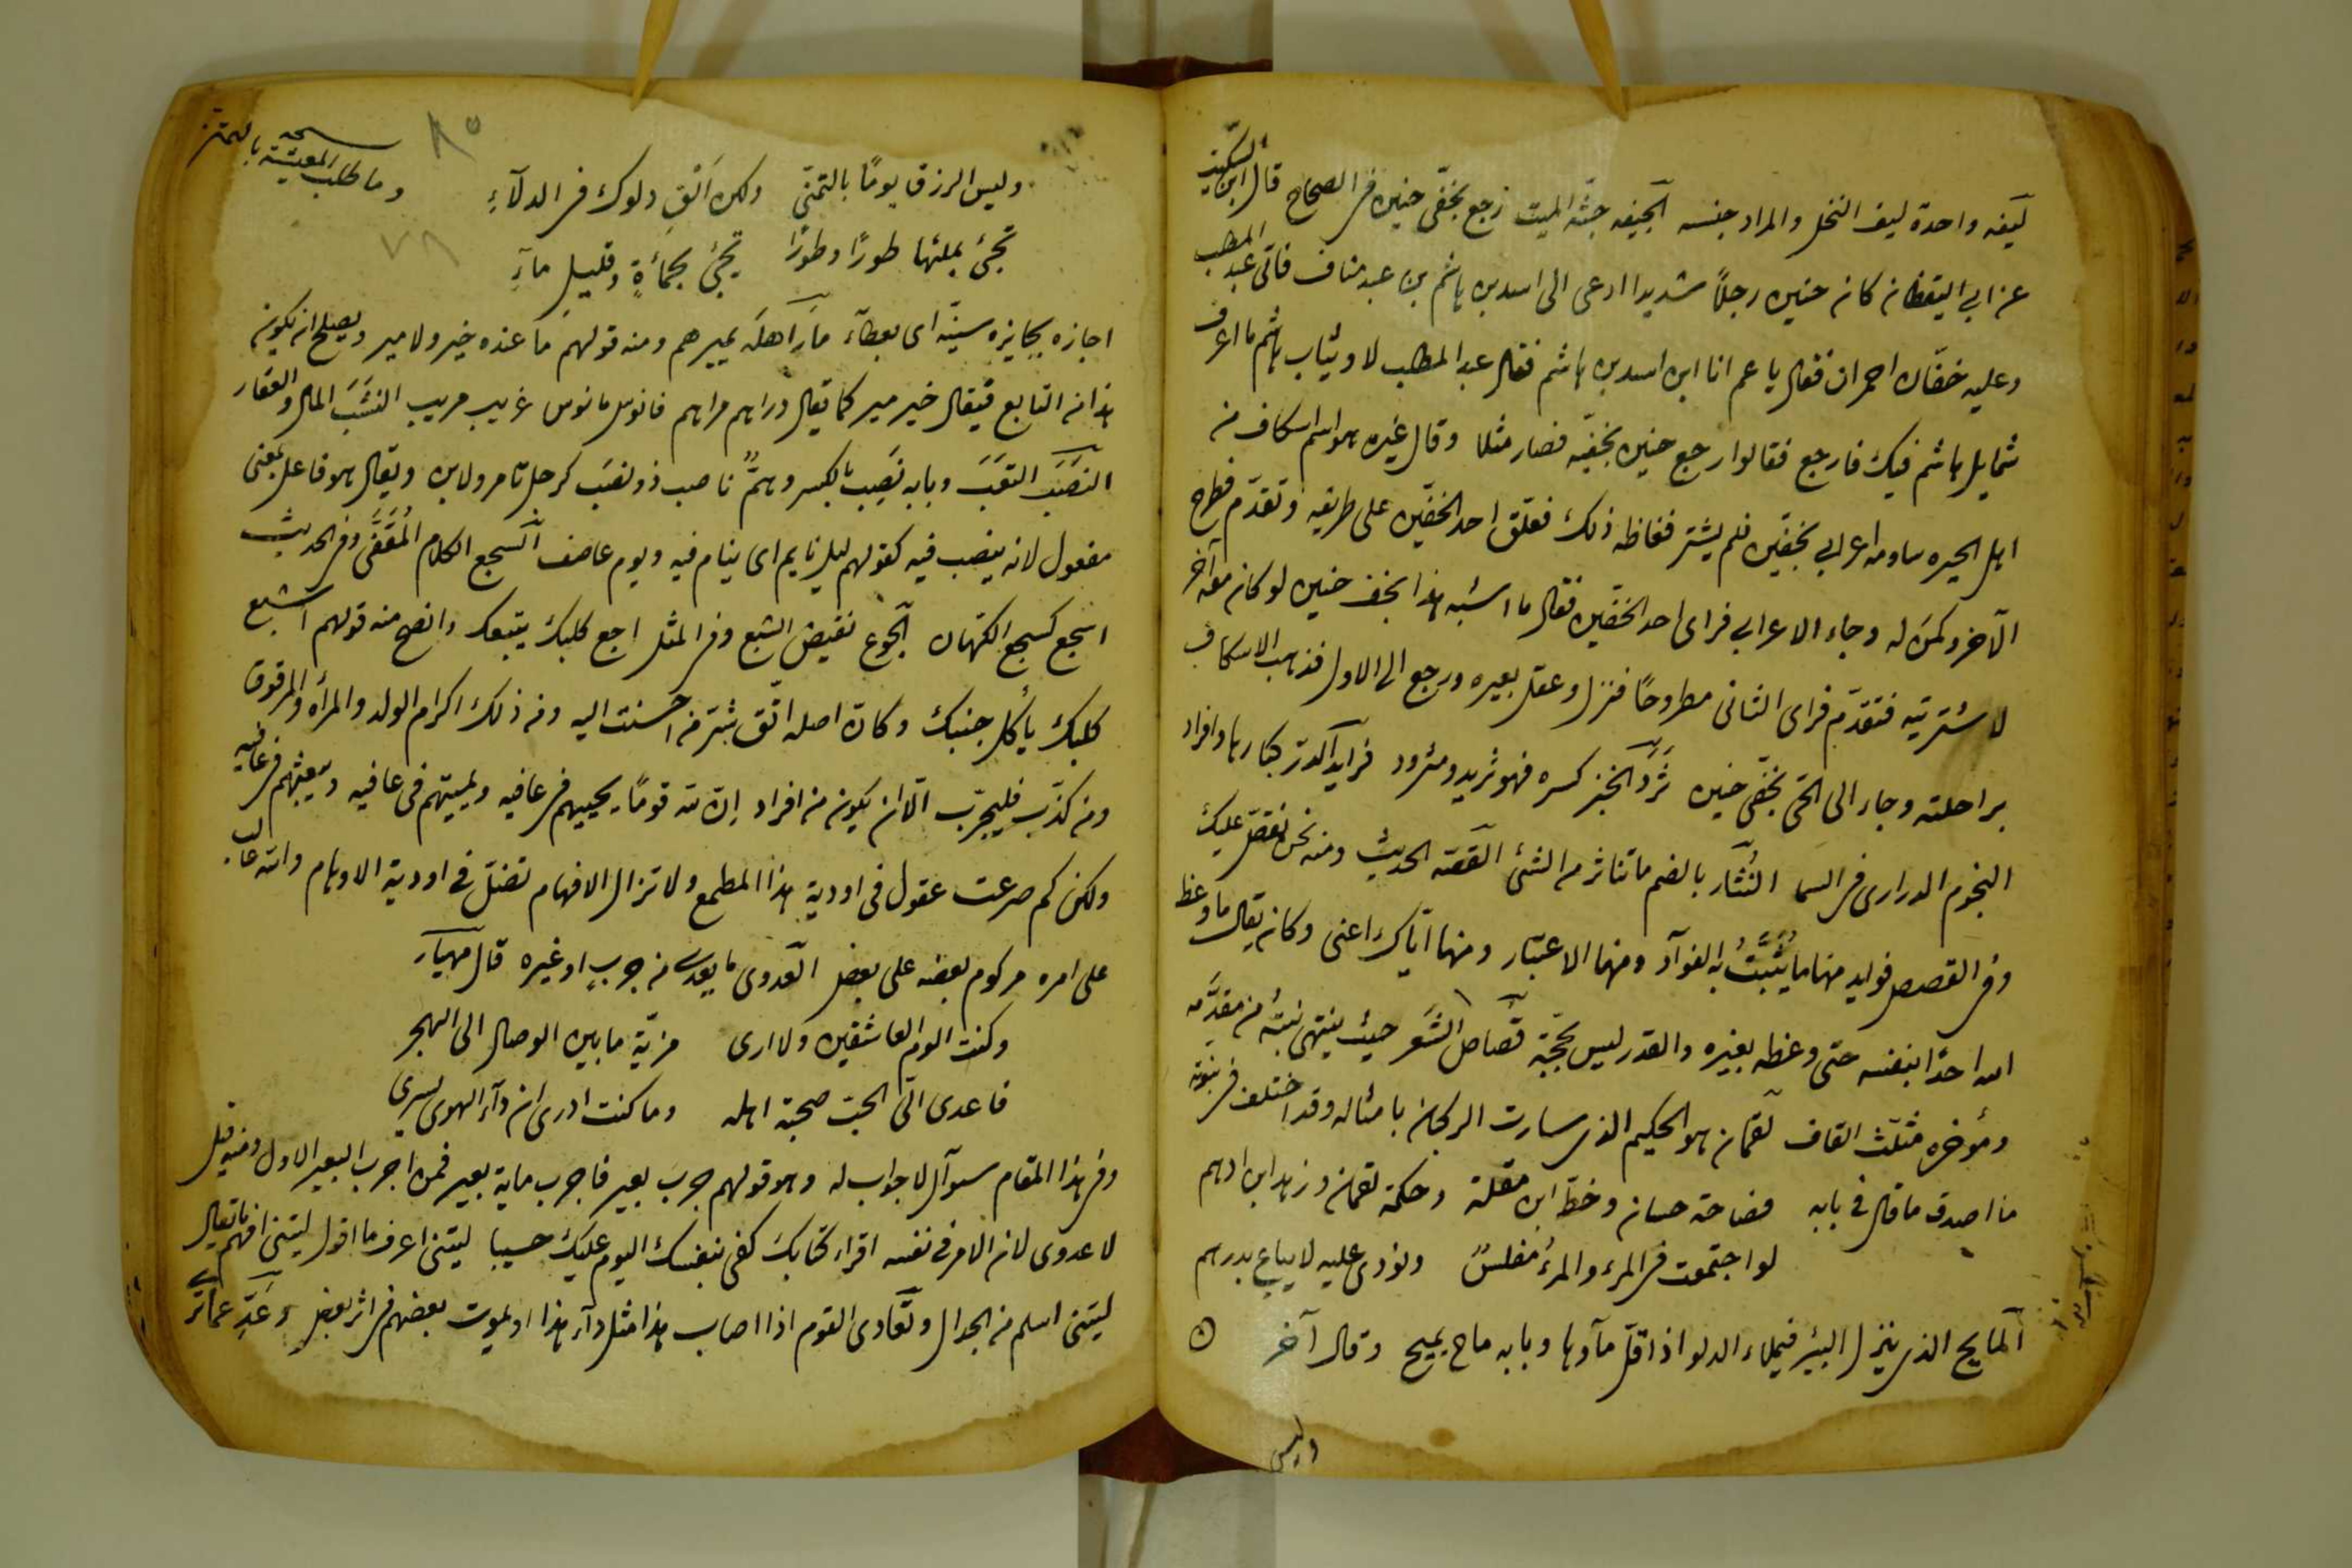 ليفه واحدة ليف النخل والمراد جنسه الجيفه جثة الميت رجع بخفّى حنين فى الصحاح قال ابن السكيت
عن ابي اليقظان كان حنين رجلاً شديدا ادعى الى اسد بن هاشم بن عبد مناف فاتى عبد المطلب
وعليه خفّان احمران فقال يا عم انا ابن اسد بن هاشم فقال عبد المطلب لا وثياب هاشم ما اعرف
شمايل هاشم فيك فارجع فقالوا رجع حنين بخفيّه فصار مثلا وقال غيره هو اسم اسكاف من
اهل الحيره ساومه اعرابي بخفّين فلم يشتر فغاظه ذلك فعلّق احد الخفّين على طريقه وتقدّم فطرح
الآخر وكمن له وجاء الاعرابي فراى احد الخفّين فقال ما اشبه هذا بخف حنين لو كان معه آخر
لاشتريته فتقدّم فراى الثانى مطروحًا فنزل وعقل بعيره ورجع الى الاول فذهب الاسكاف
براحلته وجاء الى الحى بخفّى حنين ثَرَدَ الخبز كسره فهو ثريد ومثرود فرايد الدرّ كبارها وافراد
النجوم الدرارى فى السما النُثار بالضم ما تناثر من الشئ القصّه الحديث ومنه نحن نقصّ عليك
وفى القصص فوايد منها ما يُثَبِّتُ به الفوآد ومنها الاعتبار ومنها ايّاك اعنى وكان يقال ما وعظ
الله احدًا بنفسه حتى وعظه بغيره والقدر ليس بحجّة قُصاص الشَعر حيث ينتهى نبته من مقدّمه
ومؤخره مثلّث القاف لقمان هو الحكيم الذى سارت الركبان بامثاله وقد اختلف فى نبوته
ما اصدق ما قال فى بابه فصاحة حسان وخطّ ابن مقلة وحكمة لقمان وزهد ابن ادهم
لو اجتمعت فى المرء والمرءُ مفلسٌ ونودى عليه لا يباع بدرهم
المايح الذى ينزل البئر فيملاء الدلو اذا قلّ مآوها وبابه ماح يميح وقال آخر
وليس
٨٥
٧٨
وليس الرزق يومًا بالتمنّي ولكن اَلْقِ دلوك فى الدلآءِ
وما طلب المعيشة بالتمنّى
نسخه
تجئ بملئها طورًا وطورًا تجئ بحمأةٍ وقليلِ مآءِ
اجازه بجايزه سنيّه اى بعطآء مَارَ اهلَه يميرهم ومنه قولهم ما عنده خير ولا مير ويصلح ان يكون
هذا من التابع فيقال خير مير كما يقال دراهم مراهم فانوس مانوس غريب مريب النشَب المال والعقار
النَصَبَ التعَبَ وبابه نَصِبَ بالكسر وهمٌّ ناصب ذو نصَب كرجل تامر ولابن ويقال هو فاعل بمعنى
مفعول لانه ينصب فيه كقولهم ليل نايم اى ينام فيه ويوم عاصف السجع الكلام المُقَفَّى وفى الحديث
اسجع كسجع الكهان الجُوع نقيض الشبع وفى المثل اجع كلبك يتبعك واقبح منه قولهم اشبع
كلبك يأكل جنبك وكانّ اصله اتّق شرّ من احسنت اليه ومن ذلك اكرام الولد والمرأه والمرقوق
ومن كذّب فليجرّب الّا ان يكون من افراد إنّ لله قومًا يحييهم فى عافيه ويميتهم فى عافيه ويبعثهم فى عافيه
ولكن كم صرعت عقول فى اودية هذا المطمع ولا تزال الافهام تضلّ فى اودية الاوهام والله غالب
على امره مركوم بعضه على بعض العدوى ما يعدى من جربٍ او غيره قال مهيار
وكنت الوم العاشقين ولا ارى مزيّة ما بين الوصال الى الهجر
فاعدى الىّ الحبّ صحبة اهله وما كنت ادرى ان دآء الهوى يسرى
وفى هذا المقام سوآل لا جواب له وهو قولهم جرب بعير فاجرب ماية بعير فمن اجرب البعير الاول ومنه قيل
لا عدوى لان الامر فى نفسه اقراء كتابك كفى بنفسك اليوم عليك حسيبا ليتنى اعرف ما اقول ليتنى افهم ما يقال
ليتنى اسلم من الجدال وتعَادى القوم اذا اصاب هذا مثل دآء هذا او يموت بعضهم فى اثر بعض وعَدِّ عما ترى